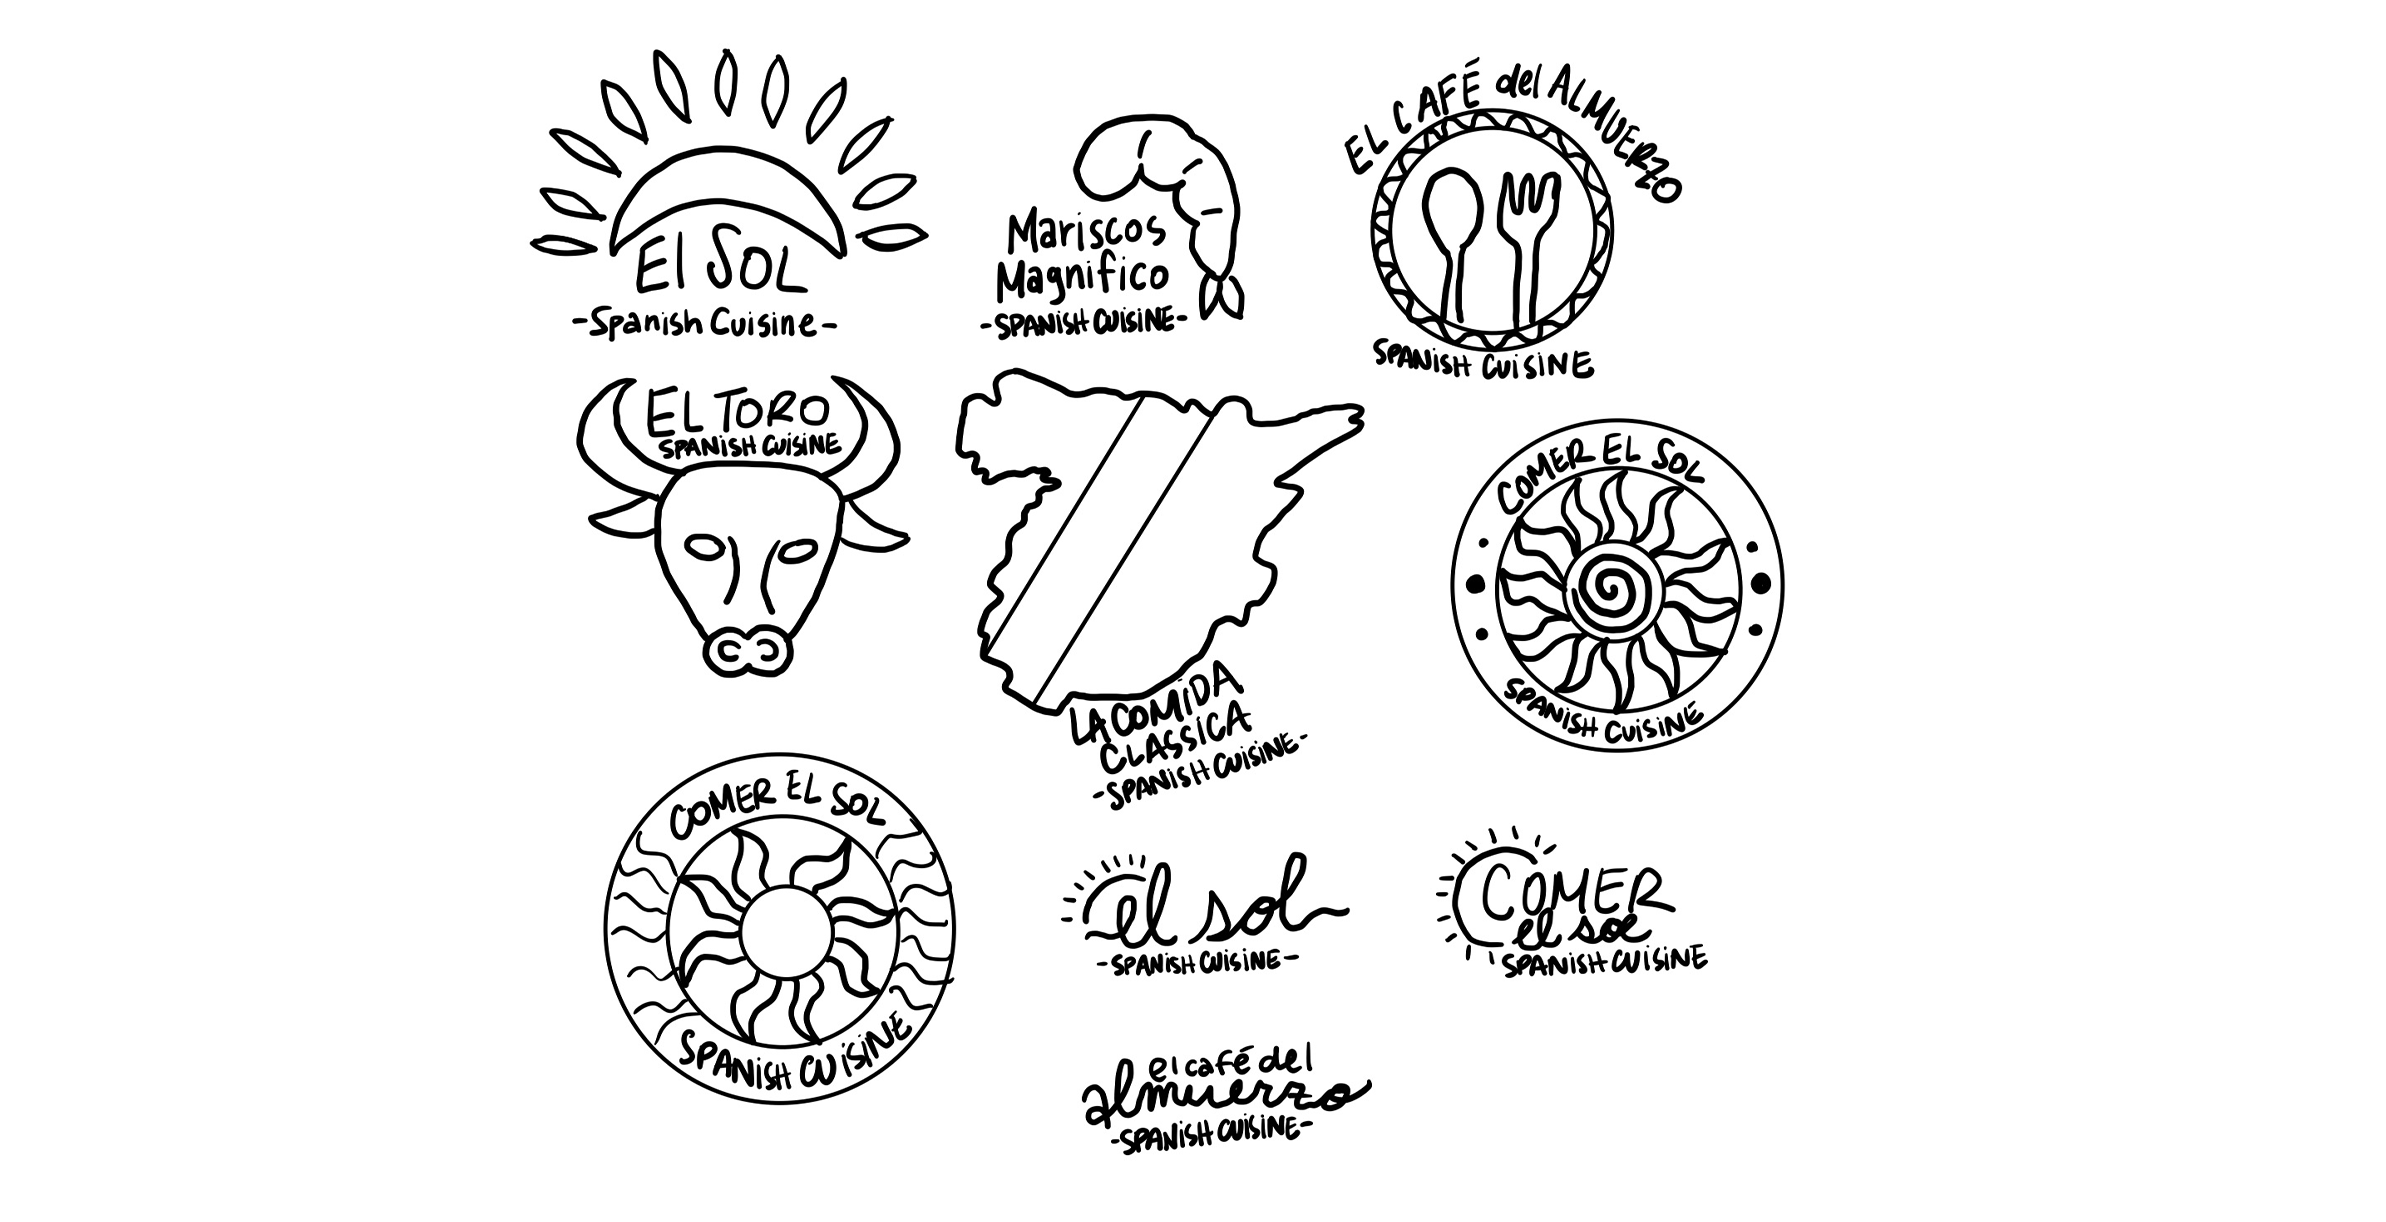 El Sol
-Spanish Cuisine-
Mariscos
Magnifico
-SPANISH CUISINE-
EL CAFÉ del ALMUERZO
SPANISH CUISINE
EL TORO
SPANISH CUISINE
LA COMIDA
CLASSICA
-SPANISH CUISINE-
COMER EL SOL
SPANISH CUISINE
COMER EL SOL
SPANISH CUISINE
el sol
-SPANISH CUISINE-
COMER
el sol
SPANISH CUISINE
el café del
almuerzo
-SPANISH CUISINE-